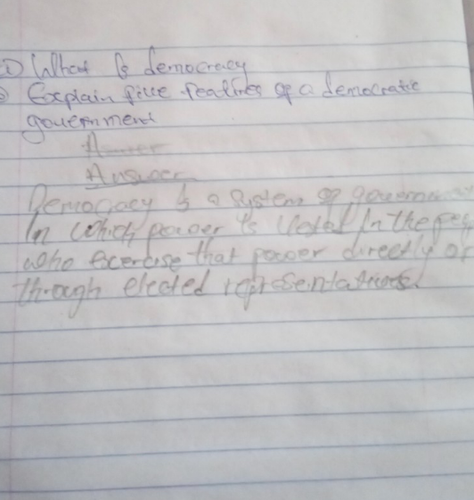 1) What is democracy
2) Explain five features of a democratic
government
Answer
Answer
Democracy is a system of
in which power is vested in the
who exercise that power directly or
through elected representatives.